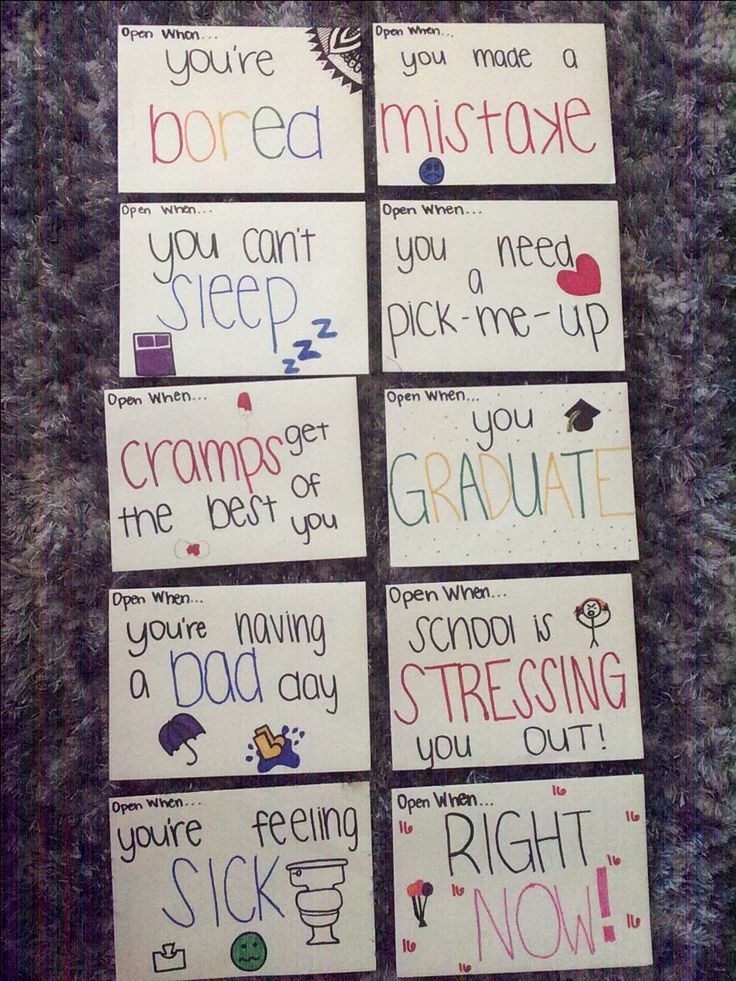 Open When...
you're
bored
Open When...
you made a
mistake
Open When...
you can't
sleep
z z z
Open When...
you need
a
pick-me-up
Open When...
cramps get
the best of
you
Open When...
you
GRADUATE
Open When...
you're having
a bad day
Open When...
SCHOOL is
STRESSING
you OUT!
Open When...
you're feeling
SICK
Open When...
16
16
16
RIGHT
16
16
NOW!
16
16
16